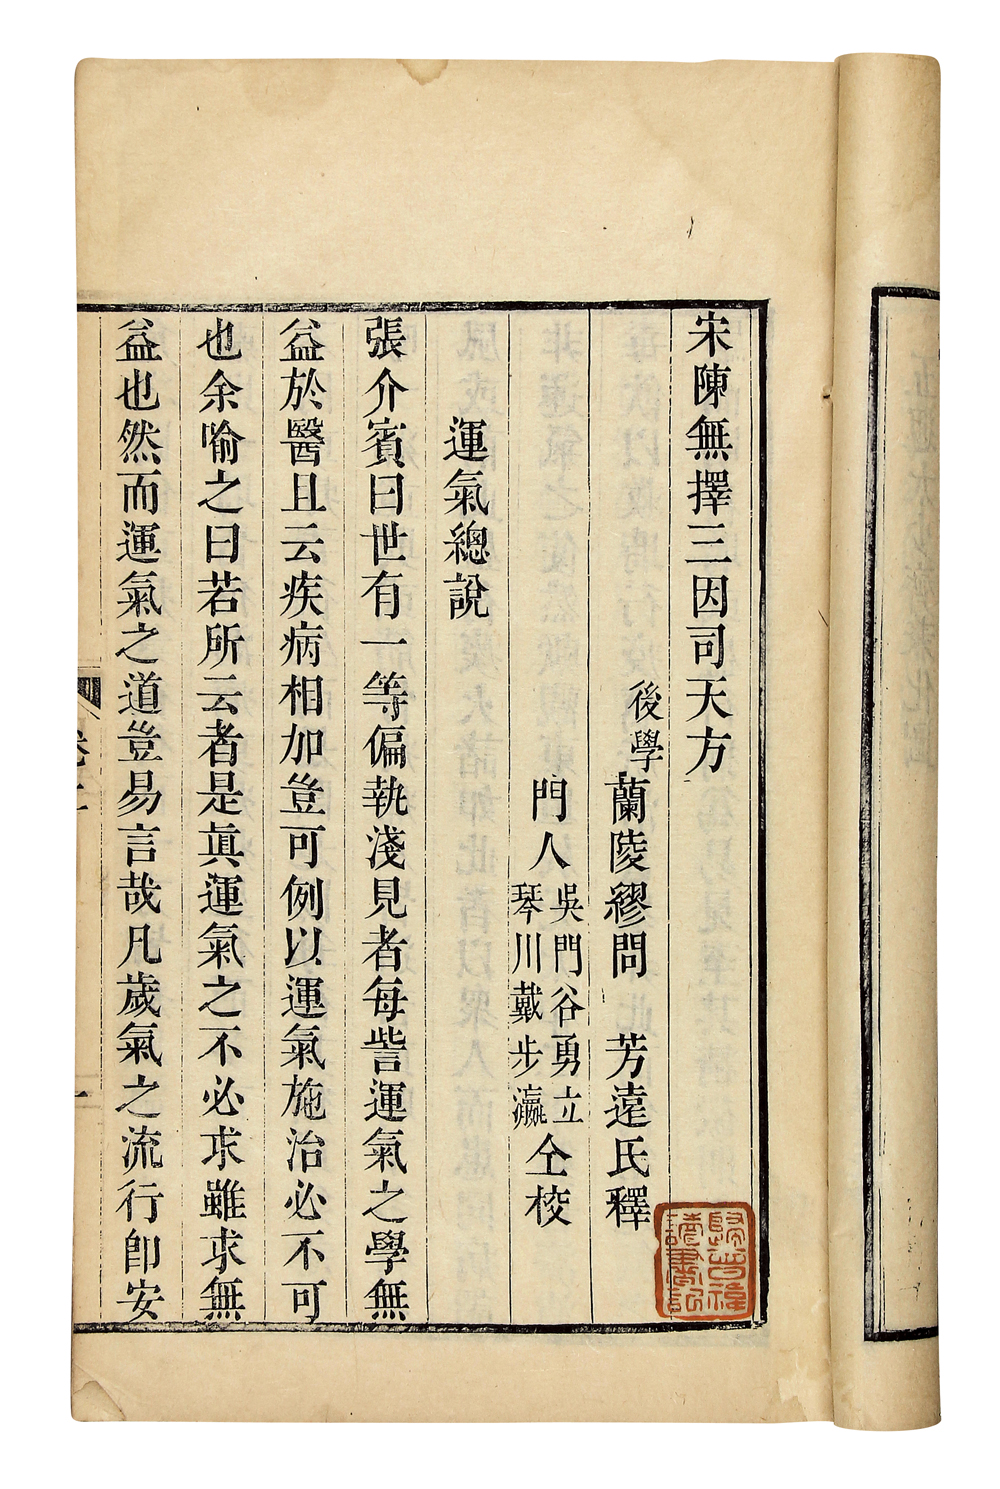 宋陳無擇三因司天方
後學蘭陵繆問 芳遠氏釋
門人吳門谷勇立琴川戴步瀛仝校
運氣總說
張介賓曰世有一等偏執淺見者每訾運氣之學無
益於醫且云疾病相加豈可例以運氣施治必不可
也余喻之曰若所云者是眞運氣之不必求雖求無
益也然而運氣之道豈易言哉凡歲氣之流行卽安